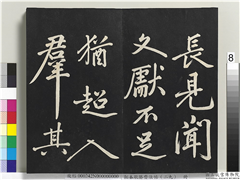 長見聞
文獻不足
猶超入
羣其
8